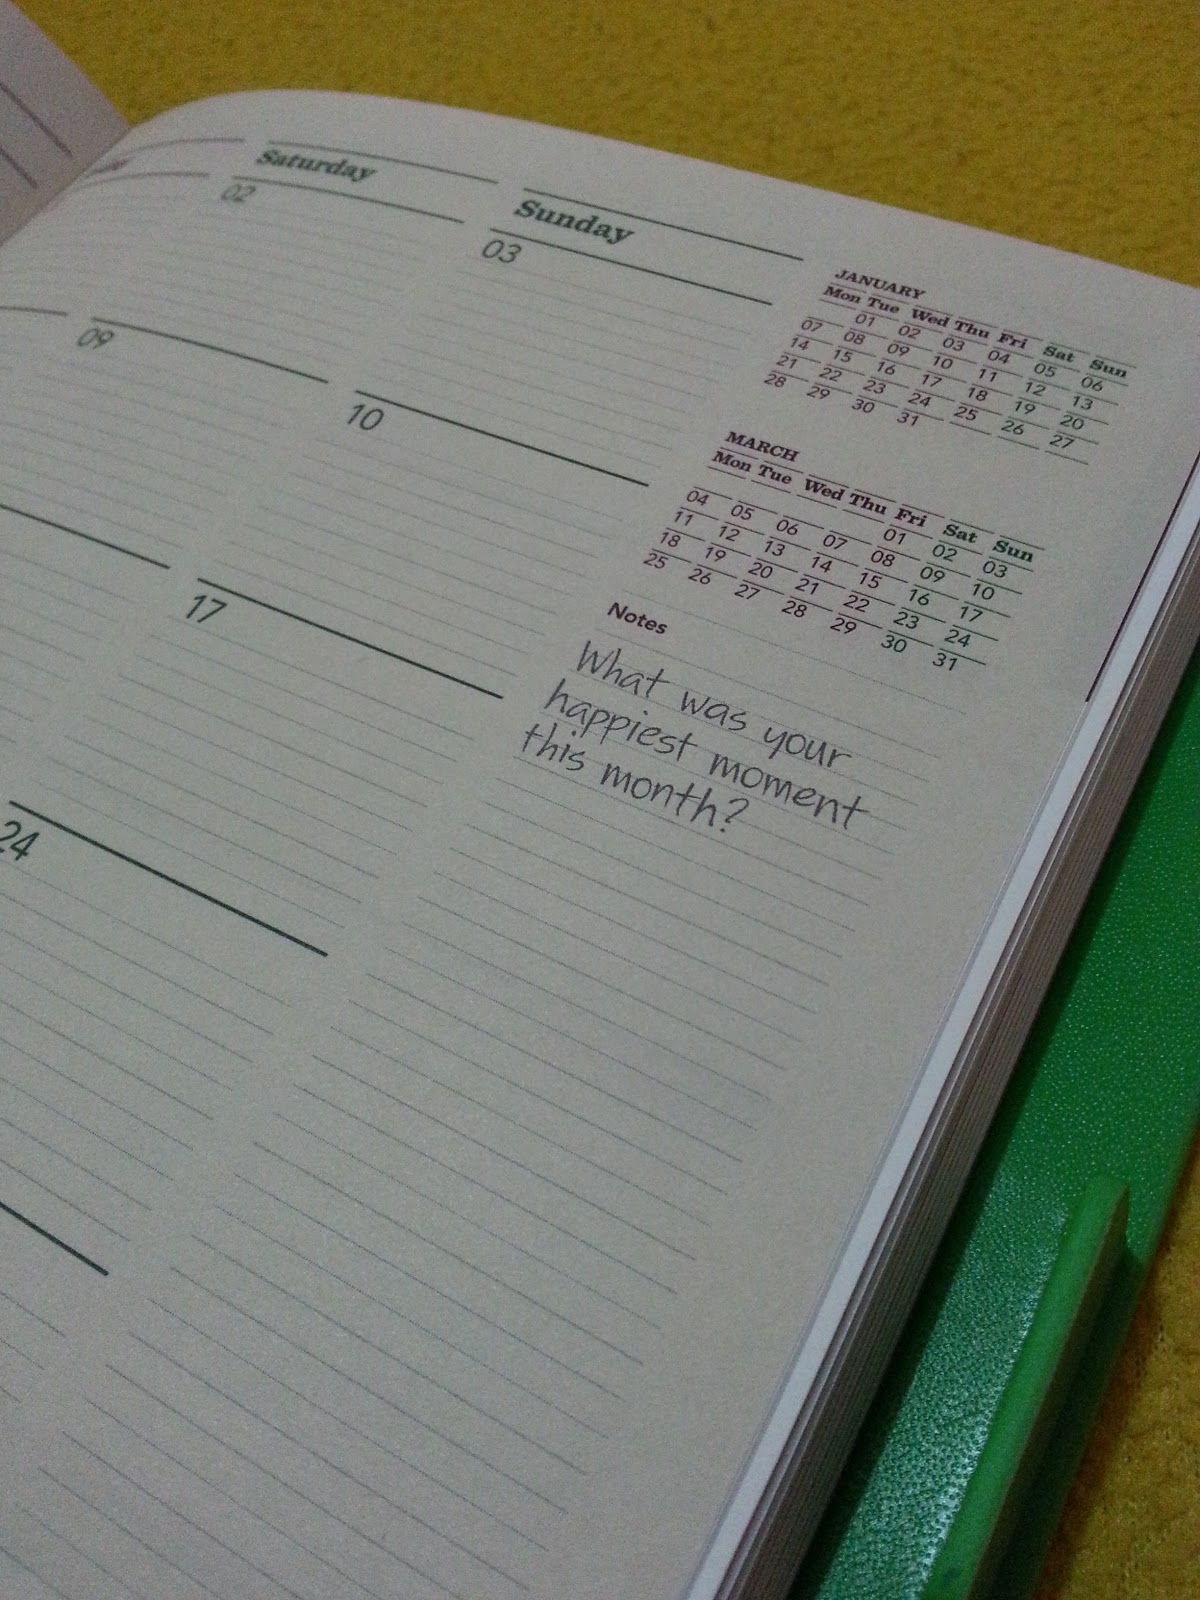 Saturday
Sunday
02
03
09
10
17
24
JANUARY
Mon Tue Wed Thu Fri Sat Sun
01 02 03 04 05 06
07 08 09 10 11 12 13
14 15 16 17 18 19 20
21 22 23 24 25 26 27
28 29 30 31
MARCH
Mon Tue Wed Thu Fri Sat Sun
01 02 03
04 05 06 07 08 09 10
11 12 13 14 15 16 17
18 19 20 21 22 23 24
25 26 27 28 29 30 31
Notes
What was your
happiest moment
this month?